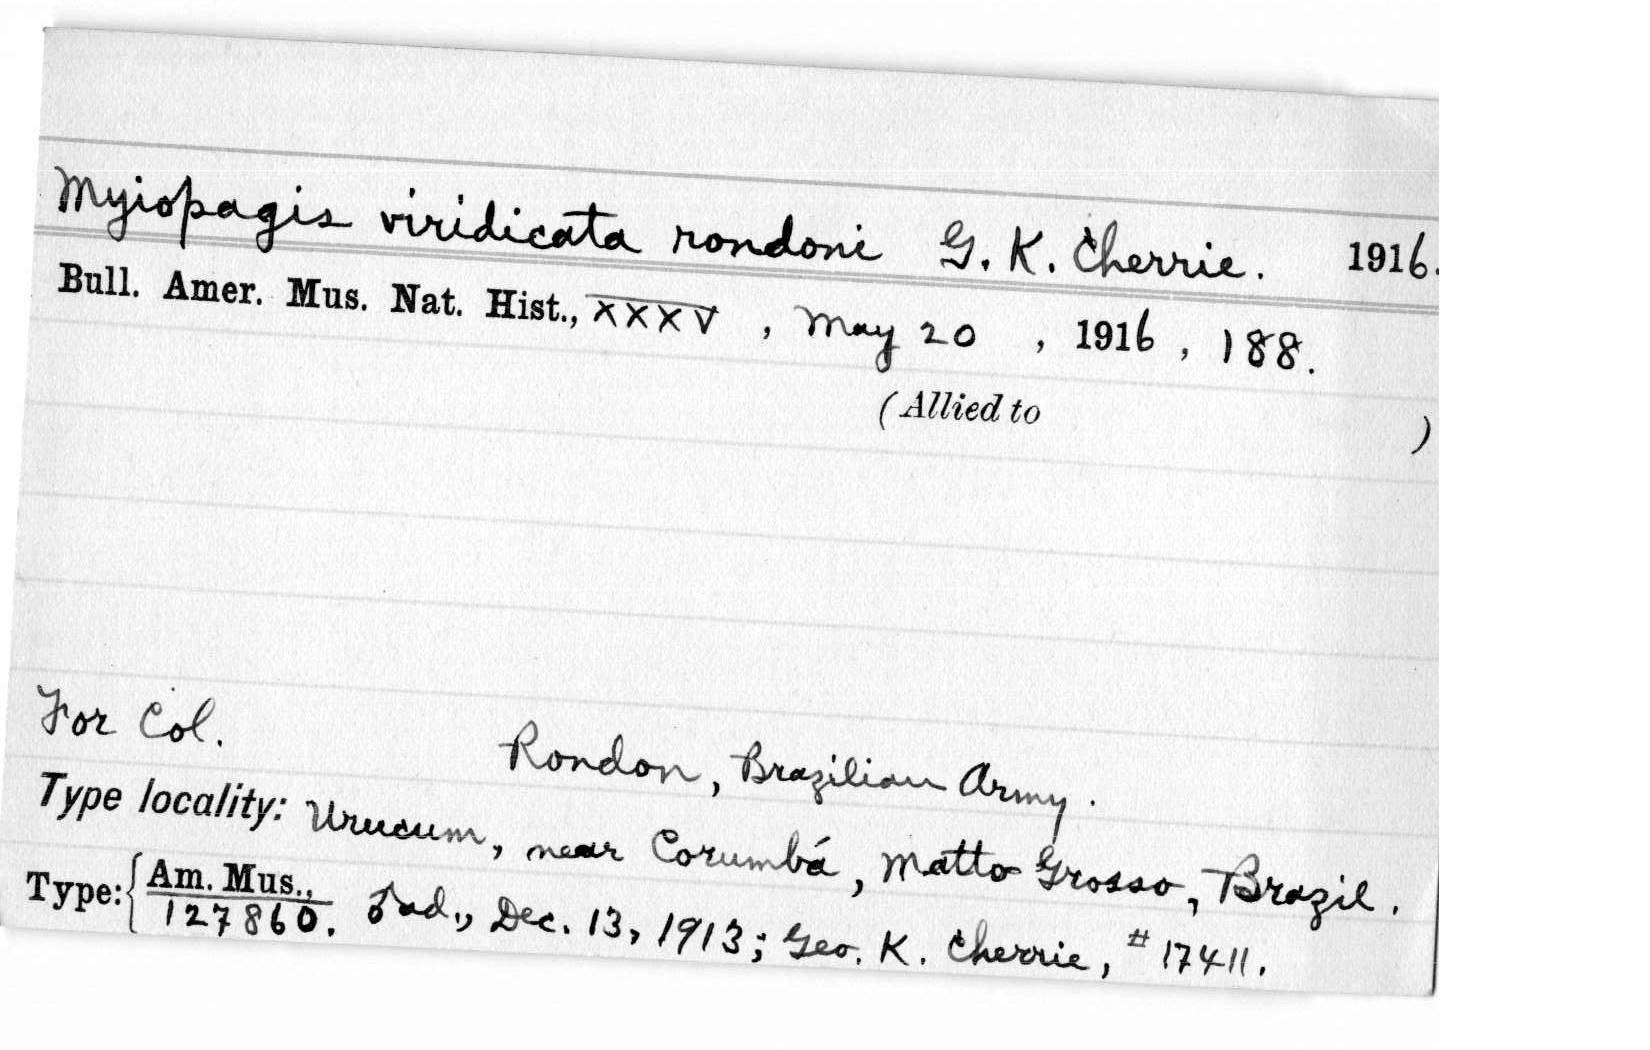 Myiopagis viridicata rondoni G. K. Cherrie. 1916.
Bull. Amer. Mus. Nat. Hist., XXXV, May 20, 1916, 188.
(Allied to )
For Col. Rondon, Brazilian Army.
Type locality: Urucum, near Corumbá, Matto Grosso, Brazil.
Type: { Am. Mus., 127860. ♂ad., Dec. 13, 1913; Geo. K. Cherrie, #17411.